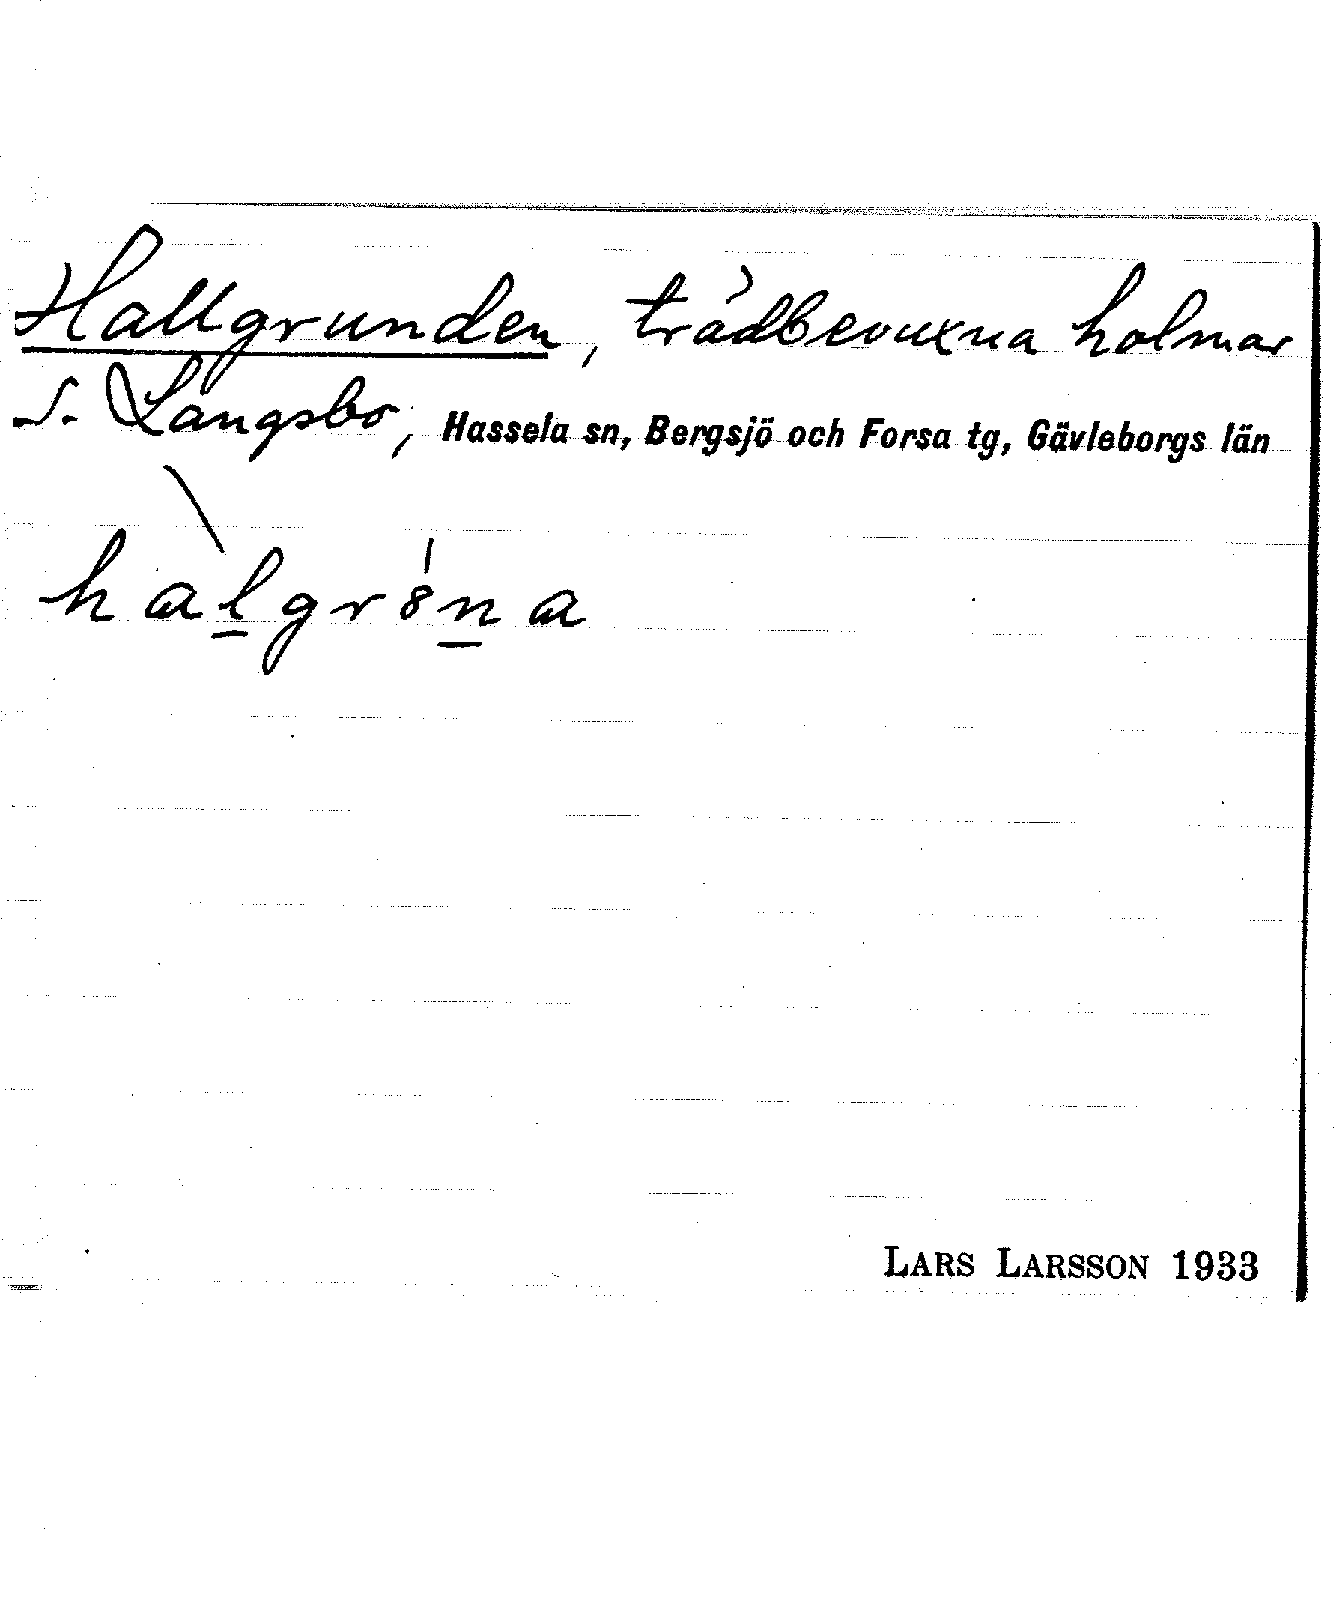 Hallgrunden, trädbevuxna holmar
S. Långsbo, Hassela sn, Bergsjö och Forsa tg, Gävleborgs län
LARS LARSSON 1933